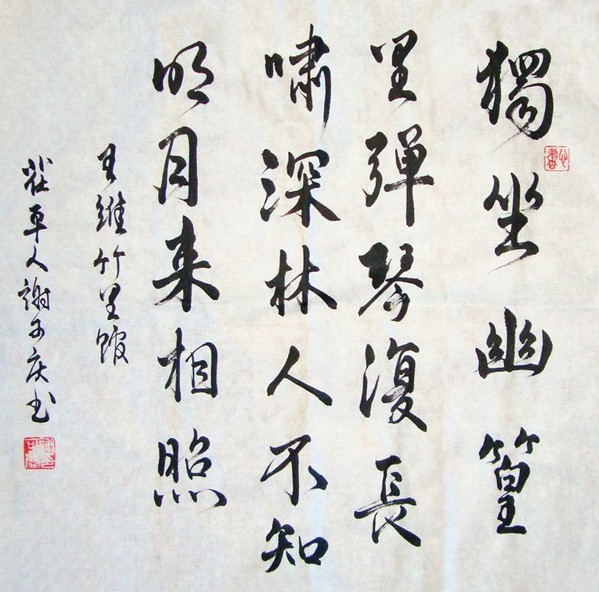 獨坐幽篁
里弹琴復長
嘯深林人不知
明月来相照
王維竹里馆
茌平人謝子庆书